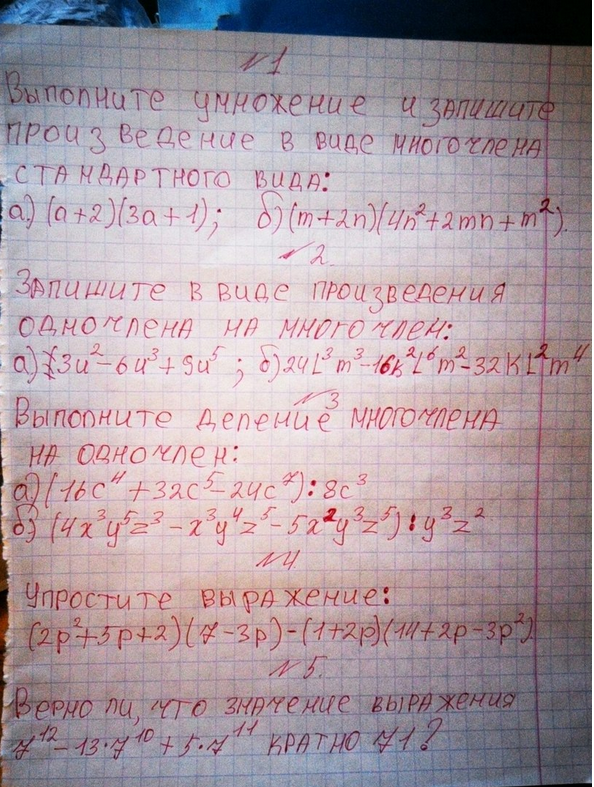 №1
Выполните умножение и запишите
произведение в виде многочлена
стандартного вида:
а) (a+2)(3a+1); б) (m+2n)(4n²+2mn+m²).
№2.
Запишите в виде произведения
одночлена на многочлен:
а) 3u²-6u³+9u⁵; б) 24L³m³-16k²L⁶m²-32KL²m⁴
№3
Выполните деление многочлена
на одночлен:
а) (16c⁴+32c⁵-24c⁷):8c³
б) (4x³y⁵z³-x³y⁴z⁵-5x²y³z⁵):y³z²
№4.
Упростите выражение:
(2p²+5p+2)(7-3p)-(1+2p)(14+2p-3p²)
№5.
Верно ли, что значение выражения
7¹²-13·7¹⁰+5·7¹¹ кратно 71?